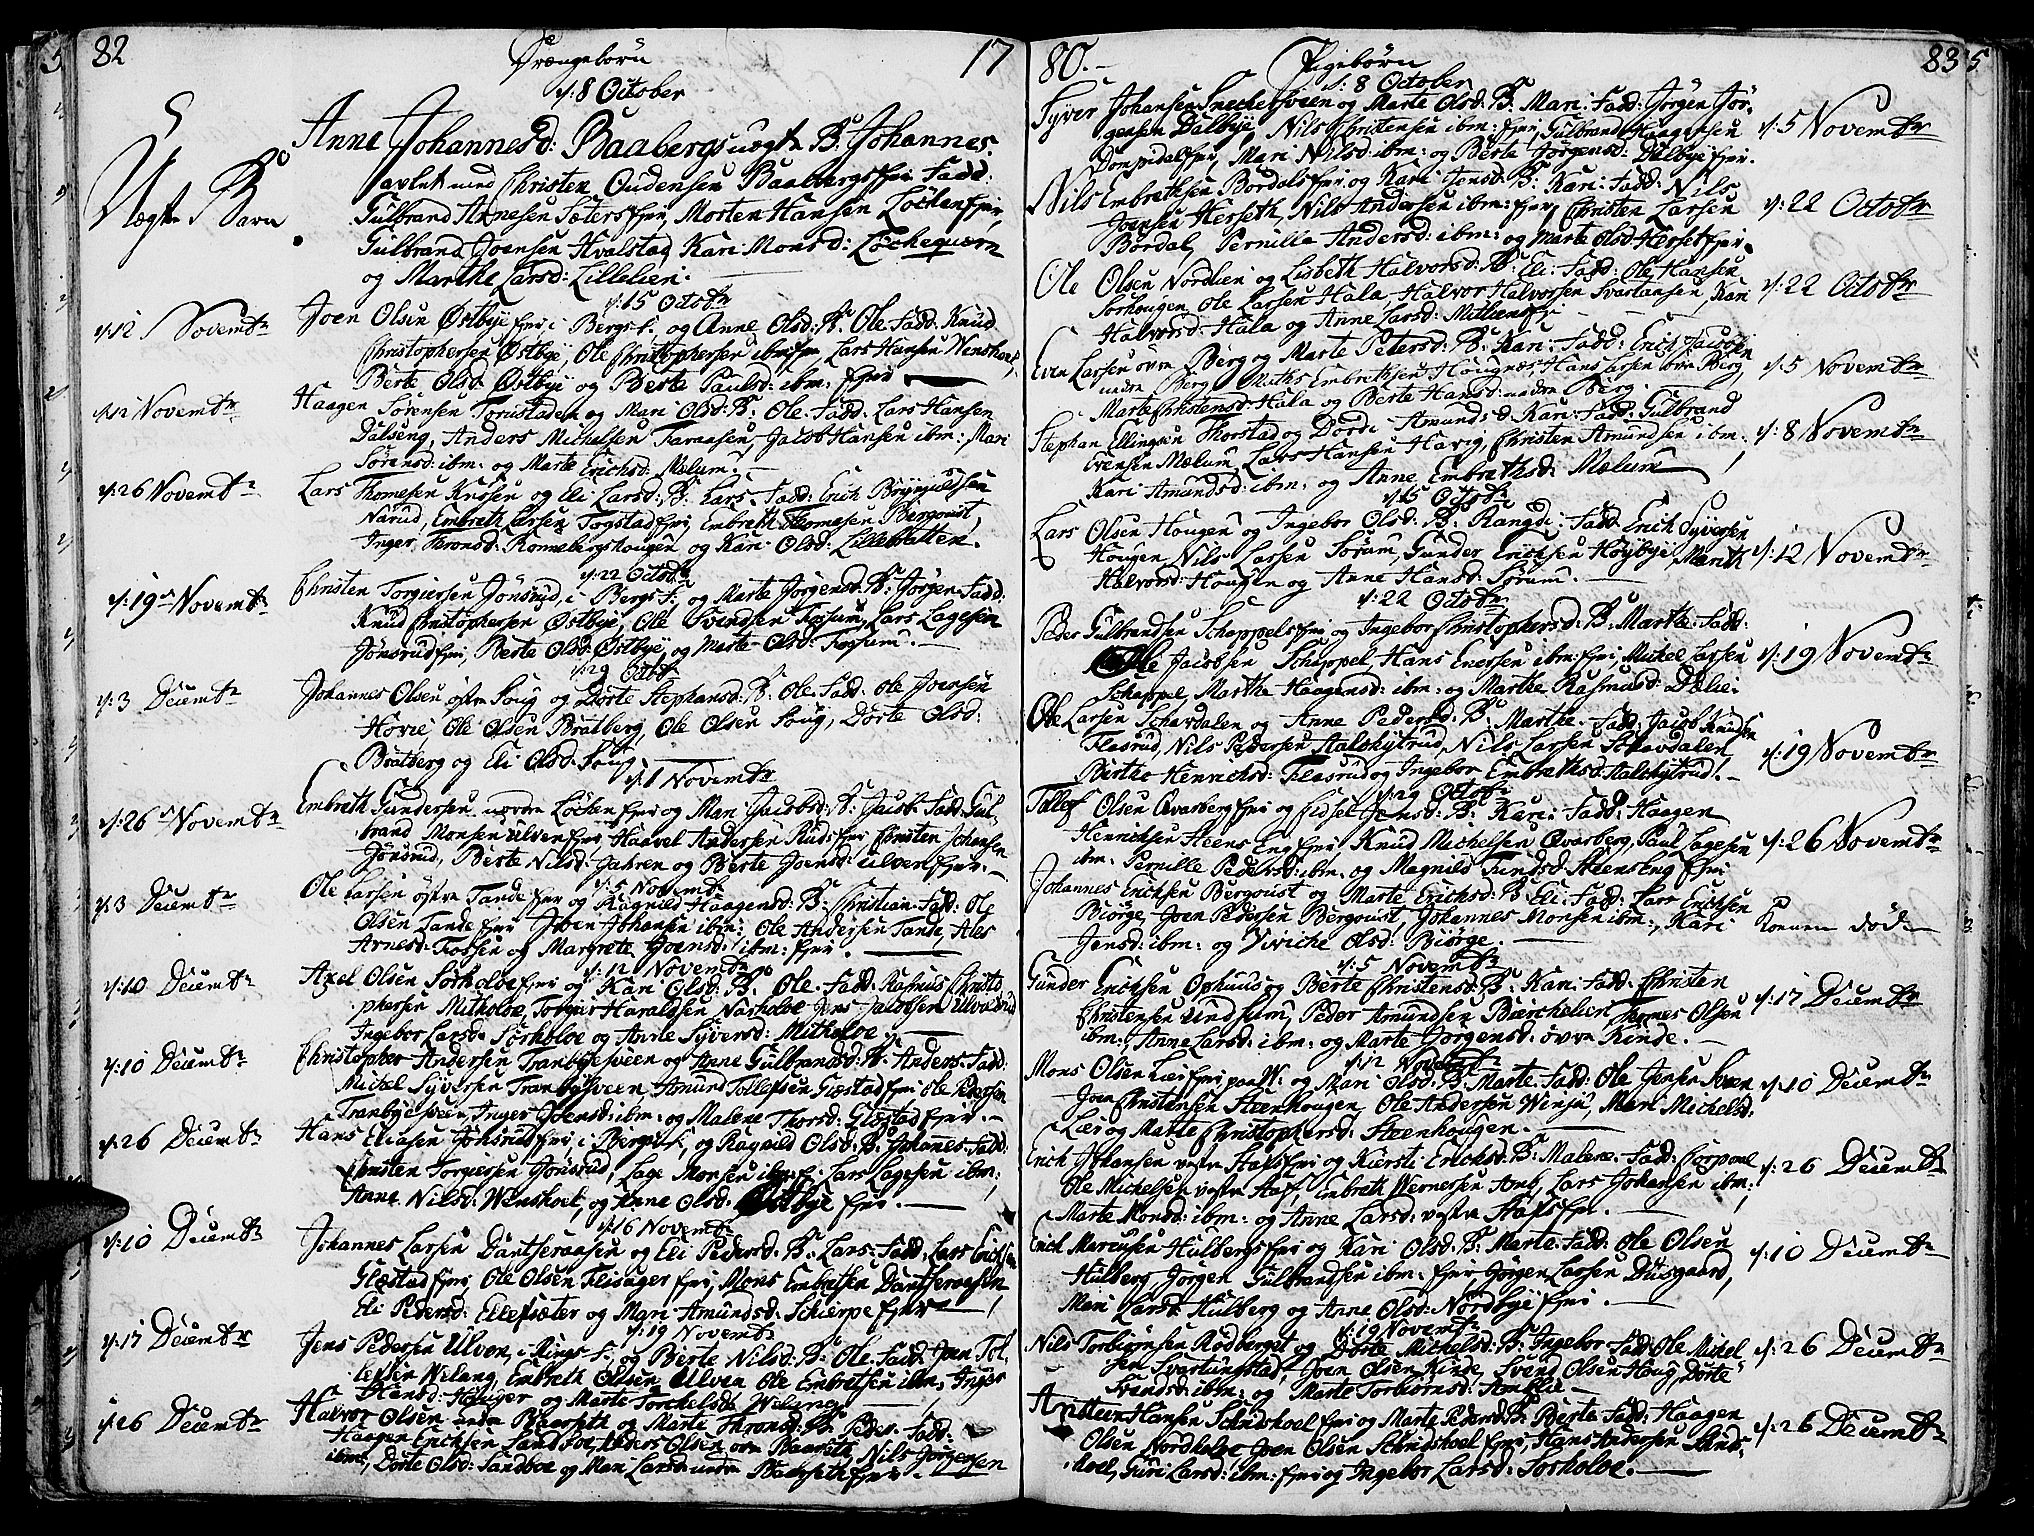 82 Drengebörn 17
d: 8 October
5
Uægte Barn
Anne Johannesd: Baabergs uægte B: Johannes
avlet med Christen Oudensen Baabergs fjer Fadd:
Gulbrand Arnesen Sæters fjer, Morten Hansen Löcken fjer,
Gulbrand Joensen Hvalstad, Kari Monsd: Löchequærn
og Marthe Larsd: Lillelien.
d: 15 Octobr
d: 12 Novembr
Joen Olsen Østbye fjer i Bergs f. og Anne Olsd: B: Ole. Fadd: Knud
Christophersen Østbye, Ole Christophersen ibm: fjer, Lars Hansen
Berte Olsd: Østbye og Berte Paulsd: ibm: fjer
d: 12 Novembr
Haagen Sörensen og Mari Olsd: B: Ole. Fadd: Lars Hansen
Dalseng, Anders Michelsen, Jacob Hansen ibm:, Mari
Sörensd: ibm: og Marte Erichsd: Mælum.
d: 26 Novembr
Lars Thomesen Knösen og Eli Larsd: B: Lars. Fadd: Erich
Narud, Embreth Larsen Togstad fjer, Embreth Thomesen Bergquist,
Inger Thronsd: Ronnebergshougen og Kari Olsd: Lillebatten.
d: 22 Octobr
d: 19 Novembr
Christen Torgiersen Jönsrud, i Bergs f: og Marte Jörgensd: B: Jörgen. Fadd:
Knud Christophersen Østbye, Ole Svendsen, Lars Lagesen
Jönsrud fjer, Berte Olsd: Østbye, og Marte Olsd:
d: 29 Octobr
d: 3 Decembr
Johannes Olsen østre Soug og Dorte Stephansd: B: Ole. Fadd: Ole Joensen
Hovie, Ole Olsen Bratberg, Ole Olsen Soug, Dorte Olsd:
Bratberg og Eli Olsd: Soug.
d: 1 Novembr
d: 26 Novembr
Embreth Gundersen Löcken fjer og Mari Jacobsd: B: Jacob. Fadd: Gul-
brand Monsen Ulven fjer, Haavel Andersen Ruds fjer, Christen Johansen
Jönsrud, Berte Nilsd: Jahren og Berte Joensd: Ulven fjer.
d: 5 Novembr
d: 3 Decembr
Ole Larsen østre Tande fjer og Ragnild Haagensd: B: Christian. Fadd: Ole
Olsen Tande fjer Joen Johansen ibm: Ole Andersen Tande, Ales
Arnesd: og Margrete Joensd: ibm: fjer.
d: 12 Novembr
d: 10 Decembr
Axel Olsen Sörholoe fjer og Kari Olsd: B: Ole. Fadd: Rasmus Christo
phersen Mitholoe, Torgier Haraldsen Nordholoe, Jens Jacobsen
Ingebor Larsd: Sörholoe og Anne Syversd: Mitholoe.
d: 10 Decembr
Christopher Andersen Tranbyesveen og Anne Gulbransd: B: Anders. Fadd:
Michel Syversen Tranbyesveen, Amund Tollefsen Glæstad fjer, Ole Pedersen
Tranbyesveen, Inger Joensd: ibm: og Malene Thorsd: Glæstad fjer.
d: 26 Decembr
Hans Eliasen Jönsrud fjer i Bergs f: og Ragnild Olsd: B: Johanes. Fadd:
Christen Torgiersen Jönsrud, Lage Monsen ibm: fjer, Lars Lagesen ibm:,
Anne Nilsd:, og Anne Olsd: Østbye fjer.
d: 16 Novembr
d: 10 Decembr
Johannes Larsen Dantseraasen og Eli Pedersd: B: Lars. Fadd: Lars Erichsen
Glæstad fjer, Ole Olsen Flisager fjer, Mons Embretsen Dantseraasen
Eli Pedersd: Ellefsæter og Mari Amundsd: Schierpe fjer
d: 19 Novembr
d: 17 Decembr
Jens Pedersen Ulven, i Rings f: og Berte Nilsd: B: Ole. Fadd: Joen Tol-
lefsen Wilang, Embreth Olsen Ulven, Ole Embretsen ibm:, Inger
Hansd: og Marte Torchelsd: Wilang.
d: 26 Decembr
Halvor Olsen nedre Baaseth og Marte Thronsd: B: Peder. Fadd:
Haagen Erichsen Sandboe, Anders Olsen øvre Baaseth, Nils Jörgensen
ibm:, Dorte Olsd: Sandboe og Mari Larsd: nedre Baaseth fjer.
80. Pigebörn 83
d: 8 October
Syver Johansen Snechersveen og Marte Olsd: B: Mari: Fadd: Jörgen Jör-
gensen Dalbye, Nils Christensen ibm: fjer, Gulbrand Haagensen
fjer, Mari Nilsd: ibm: og Berte Jörgensd: Dalbye fjer.
d: 5 Novembr
Nils Embrethsen Bordals fjer og Kari Jensd: B: Kari: Fadd: Nils
Joensen Herseth, Nils Andersen ibm: fjer, Christen Larsen
Bordal, Pernille Andersd: ibm: og Marte Olsd: Herset fjer.
d: 22 Octobr
Ole Olsen Nordlien og Lisbeth Halvorsd: B: Eli: Fadd: Ole Hansen
Sorhougen, Ole Larsen Hala, Halvor Halvorsen Svartaasen, Kari
Halvorsd: Hala og Anne Larsd:
d: 22 Octobr
Even Larsen øvre Berg og Marte Petersd: B: Kari: Fadd: Erich Jacobsen
nedre Berg, Maths Embrethsen Hougnæs, Hans Larsen øvre Berg,
Marte Christensd: Hala og Berte Hansd: nedre Berg.
d: 5 Novembr
Stephan Ellingsen Thorstad og Dordi Amundsd: B: Kari: Fadd: Gulbrand
Evensen Mælum, Lars Hansen Havig, Christen Amundsen ibm:
Kari Amundsd: ibm: og Anne Embrethsd: Mælum
d: 8 Novembr
d: 15 Octobr
Lars Olsen Hougen og Ingebor Olsd: B: Rangdi: Fadd: Erich Syversen
Hougen, Nils Larsen Sörum, Gunder Erichsen Höybye, Marith
Halvorsd: Hougen og Anne Hansd: Sörum.
d: 12 Novembr
d: 22 Octobr
Peder Gulbrandsen Schappels fjer og Ingebor Christophersd: B: Marthe: Fadd:
Jacobsen Schappel, Hans Enersen ibm: fjer, Michel Larsen
Schappel, Marthe Haagensd: ibm: og Marthe Rasmusd: Dælie.
d: 19 Novembr
Ole Larsen Schavdalen og Anne Pedersd: B: Marthe: Fadd: Jacob Knudsen
Flasrud, Nils Pedersen Stalskytrud, Nils Larsen Schavdalen
Birthe Henrichsd: Flasrud og Ingebor Embrethsd: Stalskytrud.
d: 19 Novembr
d: 29 Octobr
Tollef Olsen Qvarberg fjer og Sidsel Jensd: B: Kari: Fadd: Haagen
Henrichsen Steens Eng fjer, Knud Michelsen Qvarberg, Paul Lagesen
ibm: Pernille Pedersd: ibm: og Magnild Steens Eng fjer
d: 26 Novembr
Johannes Erichsen Bergquist og Marte Erichsd: B: Eli: Fadd: Lars Erichsen
Biörge, Joen Pedersen Bergquist, Johannes Monsen ibm:, Kari
Jensd: ibm: og Viviche Olsd: Biörge.
Konen död
d: 5 Novembr
Gunder Erichsen Ophuus og Berte Christensd: B: Kari: Fadd: Christen
Christensen Undsum, Peder Amundsen Bierchelien, Olsen
ibm:, Anne Larsd: ibm: og Marte Jörgensd: øvre Kinde.
d: 17 Decembr
d: 12 Novembr
Mons Olsen Lier fjer paa W: og Mari Olsd: B: Marte: Fadd: Ole Jensen
Joen Christensen Steenhougen, Ole Andersen Winju, Mari Michelsd:
Lier og Marte Christophersd: Steenhougen.
d: 10 Decembr
Erich Johansen vestre Hafs fjer og Kiersti Erichsd: B: Malene: Fadd: Corporal
Ole Michelsen vestre Haf, Embreth Wernersen Amb, Lars Johansen ibm:,
Marte Monsd: ibm: og Anne Larsd: vestre Hafs fjer.
d: 26 Decembr
Erich Marcusen Hulbergs fjer og Kari Olsd: B: Marte: Fadd: Ole Olsen
Hulberg, Jörgen Gulbrandsen ibm: fjer, Jörgen Larsen Diisgaard,
Mari Larsd: Hulberg og Anne Olsd: Nordbye fjer.
d: 10 Decembr
d: 19 Novembr
Nils Torbiörnsen Rödberget og Dorte Michelsd: B: Ingebor: Fadd: Ole Michel
sen Svartungstad, Joen Olsen Kinde, Svend Olsen Houg, Dorte
Svendsd: ibm: og Marte Torbiörnsd: Amblie
d: 26 Decembr
Hansen Schridshoel fjer og Marte Pedersd: B: Berte: Fadd: Haagen
Olsen Nordholoe, Joen Olsen Schridshoel fjer, Hans Andersen
hoel, Guri Larsd: ibm: fjer og Ingebor Larsd: Sörholoe.
d: 26 Decembr